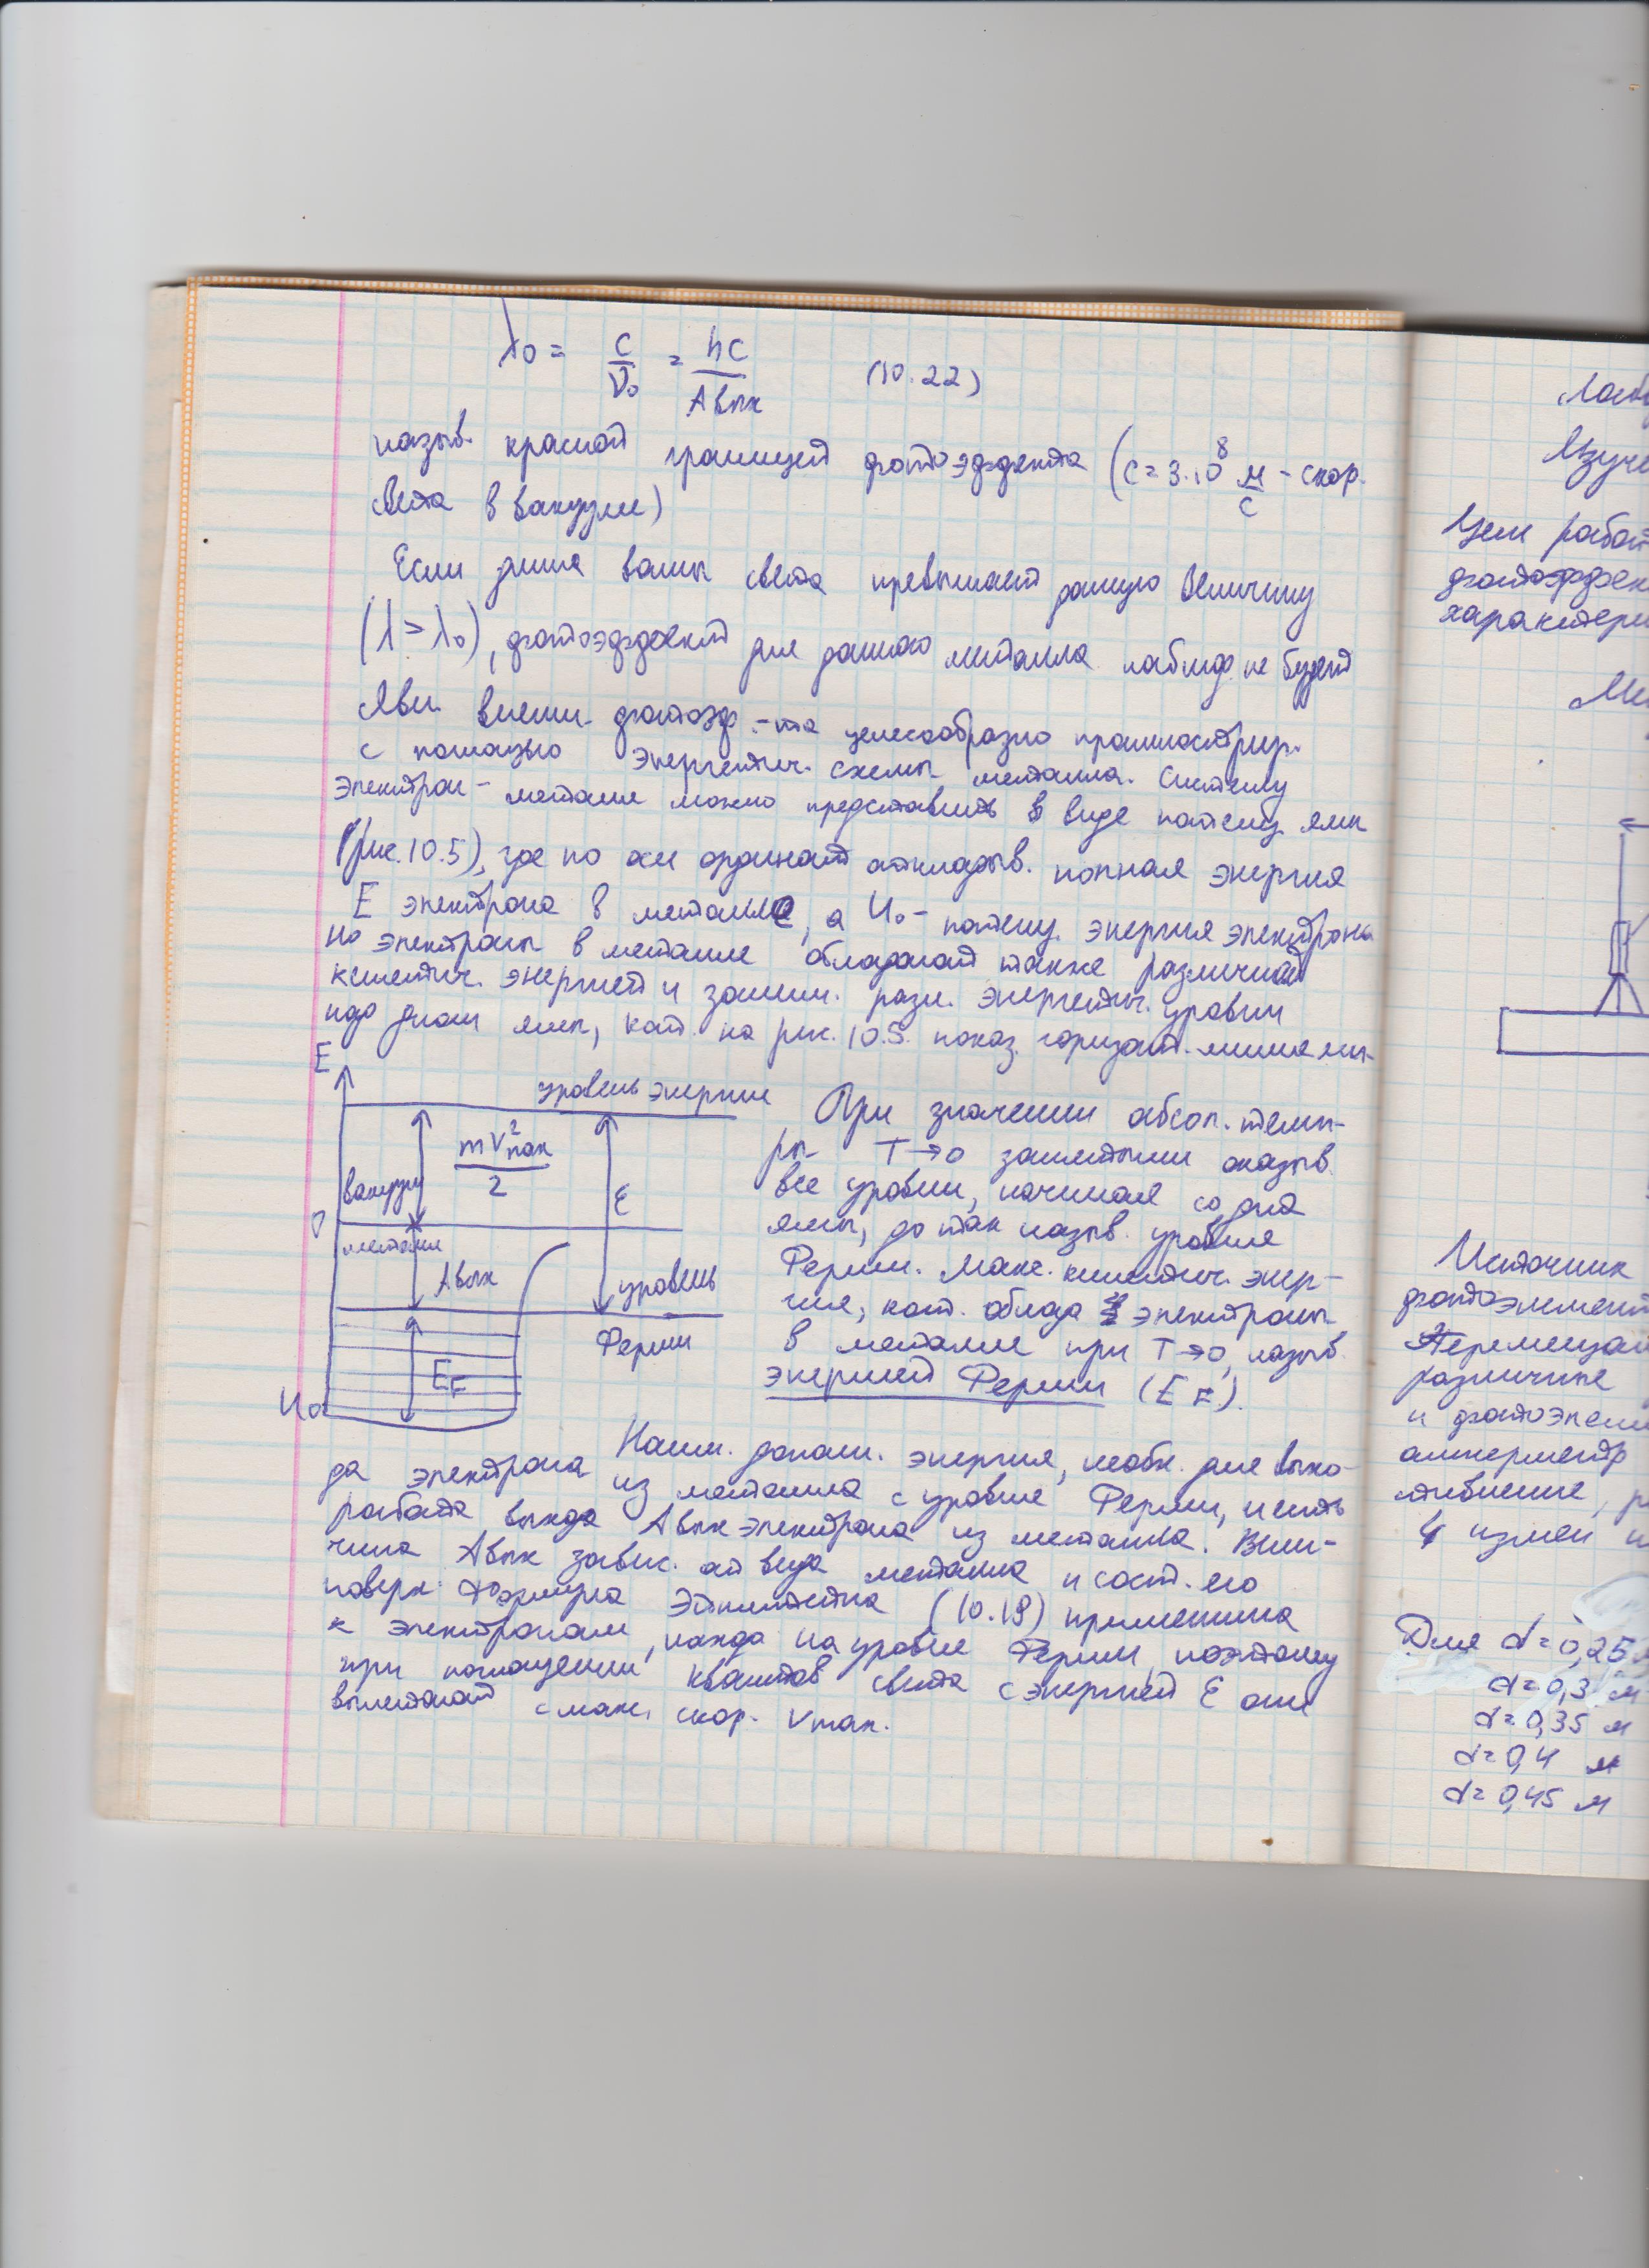 λ₀ = c/ν₀ = hc/Aвых (10.22)
назыв. красной границей фотоэффекта (c = 3·10⁸ м/с - скор.
света в вакууме)
Если длина волны света превышает данную величину
(λ > λ₀), фотоэффект для данного металла наблюд. не будет
Явл. внешн. фотоэф.-та целесообразно проиллюстрир.
с помощью энергетич. схемы металла. Систему
электрон - металл можно представить в виде потенц. ямы
(рис. 10.5), где по оси ординат откладыв. полная энергия
E электрона в металле, а U₀ - потенц. энергия электрона
Но электроны в металле обладают также различной
кинетич. энергией и заним. разл. энергетич. уровни
над дном ямы, кот. на рис. 10.5. показ. горизонт. линиями-
E
уровень энергии
mV²max/2
вакуум
ε
0
металл
Aвых
уровень
Ферми
E_F
U₀
При значении абсол. темп-
ры T→0 занятыми оказыв.
все уровни, начиная со дна
ямы, до так назыв. уровня
Ферми. Макс. кинетич. энер-
гия, кот. облада электроны
в металле при T→0, назыв.
энергией Ферми (E_F).
Наим. дополн. энергия, необх. для выхо-
да электрона из металла с уровня Ферми, и есть
работа выхода Aвых электрона из металла. Вели-
чина Aвых завис. от вида металла и сост. его
поверх. Формула Эйнштейна (10.19) применима
к электронам, наход на уровне Ферми, поэтому
при поглощении квантов света с энергией ε они
вылетают с макс. скор. Vmax.
Изуче
Цели работ
фотоэффек
характери
Источник
фотоэлемент
Перемещая
различные
и фотоэлем
амперметр
4 измен
Для d=0,25
d=0,3 м
d=0,35 м
d=0,4 м
d=0,45 м